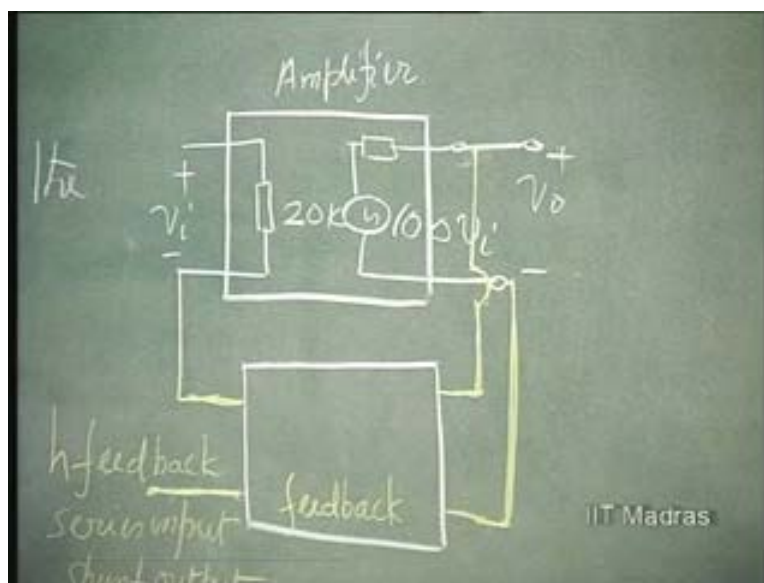 Amplifier
+
vi
-
20K
100vi
+
vo
-
h-feedback
series input
shunt output
feedback
IIT Madras